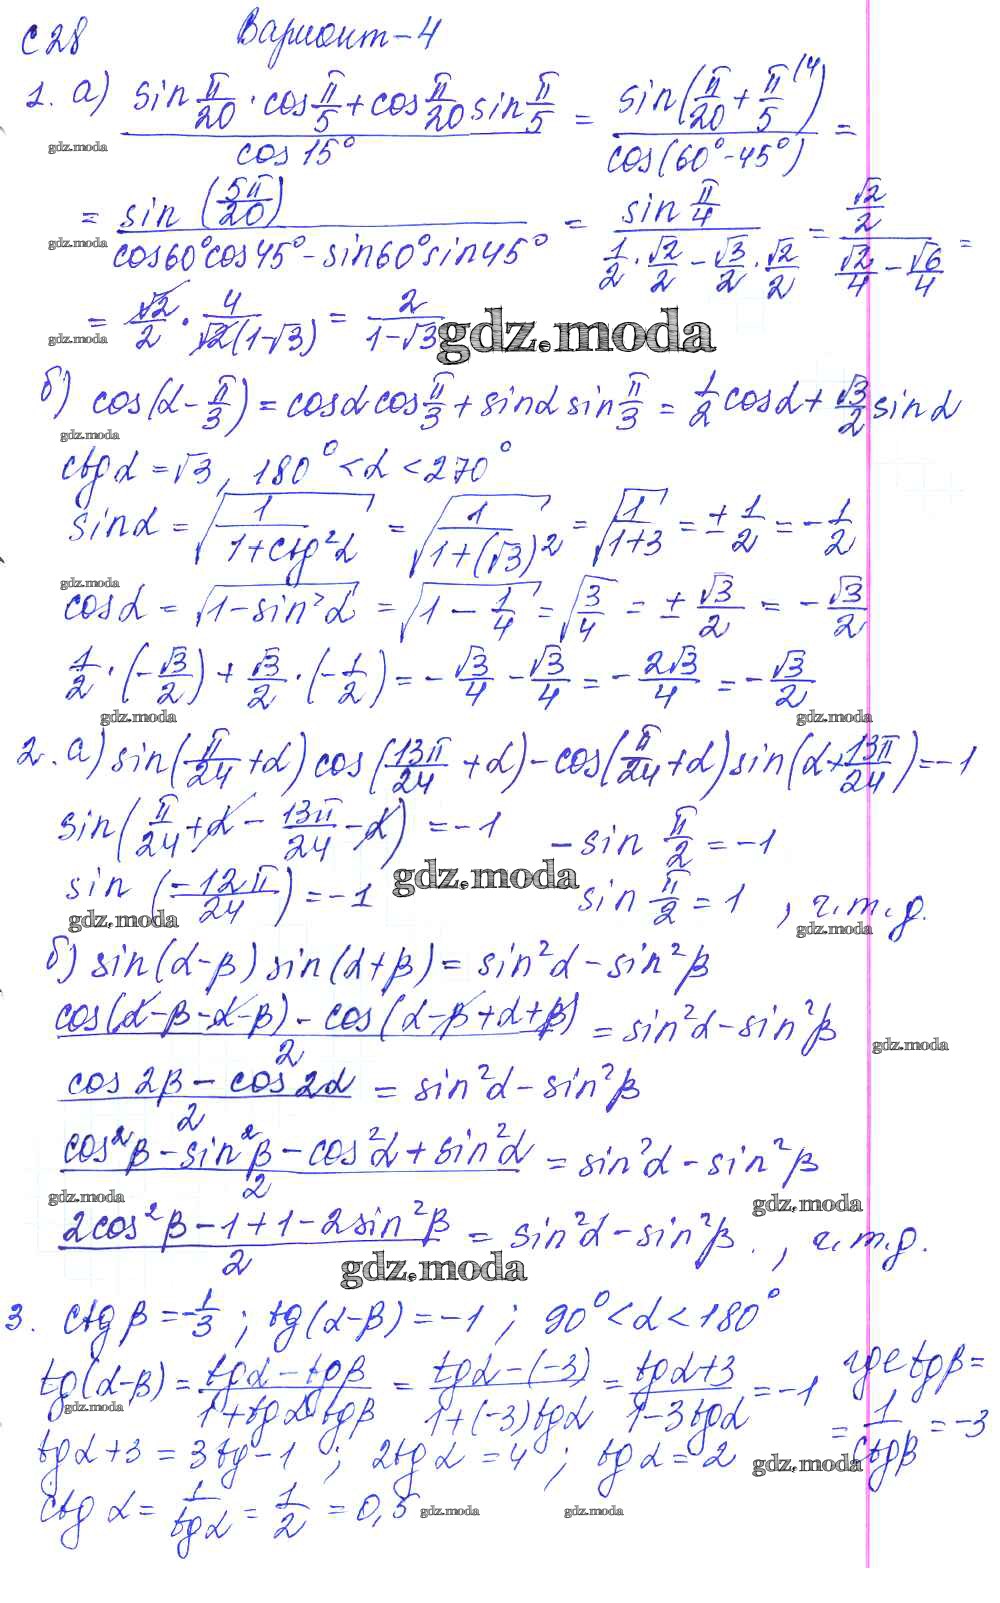 С 28 Вариант-4
1. а) (sin π/20 · cos π/5 + cos π/20 sin π/5)/(cos 15°) = (sin(π/20 + π/5 ⁽⁴⁾))/(cos(60°-45°)) =
gdz.moda
= (sin (5π/20))/(cos60°cos45° - sin60°sin45°) = (sin π/4)/(1/2 · √2/2 - √3/2 · √2/2) = (√2/2)/(√2/4 - √6/4) =
gdz.moda
= √2/2 · 4/(√2(1-√3)) = 2/(1-√3)
gdz.moda gdz.moda
б) cos(α - π/3) = cosα cos π/3 + sinα sin π/3 = 1/2 cosα + √3/2 sinα
gdz.moda
ctg α = √3, 180° < α < 270°
sinα = √(1/(1+ctg²α)) = √(1/(1+(√3)²)) = √(1/(1+3)) = ± 1/2 = - 1/2
gdz.moda
cosα = √(1-sin²α) = √(1 - 1/4) = √(3/4) = ± √3/2 = - √3/2
1/2 · (- √3/2) + √3/2 · (- 1/2) = - √3/4 - √3/4 = - 2√3/4 = - √3/2
gdz.moda gdz.moda
2. а) sin(π/24 + α) cos(13π/24 + α) - cos(π/24 + α) sin(α + 13π/24) = -1
sin(π/24 + α - 13π/24 - α) = -1 - sin π/2 = -1
gdz.moda
sin (-12π/24) = -1 sin π/2 = 1, ч.т.д.
gdz.moda gdz.moda
б) sin(α-β) sin(α+β) = sin²α - sin²β
(cos(α-β-α-β) - cos(α-β+α+β))/2 = sin²α - sin²β
gdz.moda
(cos 2β - cos 2α)/2 = sin²α - sin²β
(cos²β - sin²β - cos²α + sin²α)/2 = sin²α - sin²β
gdz.moda gdz.moda
(2cos²β - 1 + 1 - 2sin²β)/2 = sin²α - sin²β., ч.т.д.
gdz.moda
3. ctg β = - 1/3; tg(α-β) = -1; 90° < α < 180°
tg(α-β) = (tgα - tgβ)/(1 + tgα tgβ) = (tgα - (-3))/(1+(-3)tgα) = (tgα+3)/(1-3tgα) = -1 где tgβ =
gdz.moda
= 1/ctgβ = -3
tgα + 3 = 3tg - 1; 2tgα = 4; tgα = 2
gdz.moda
ctg α = 1/tgα = 1/2 = 0,5
gdz.moda gdz.moda